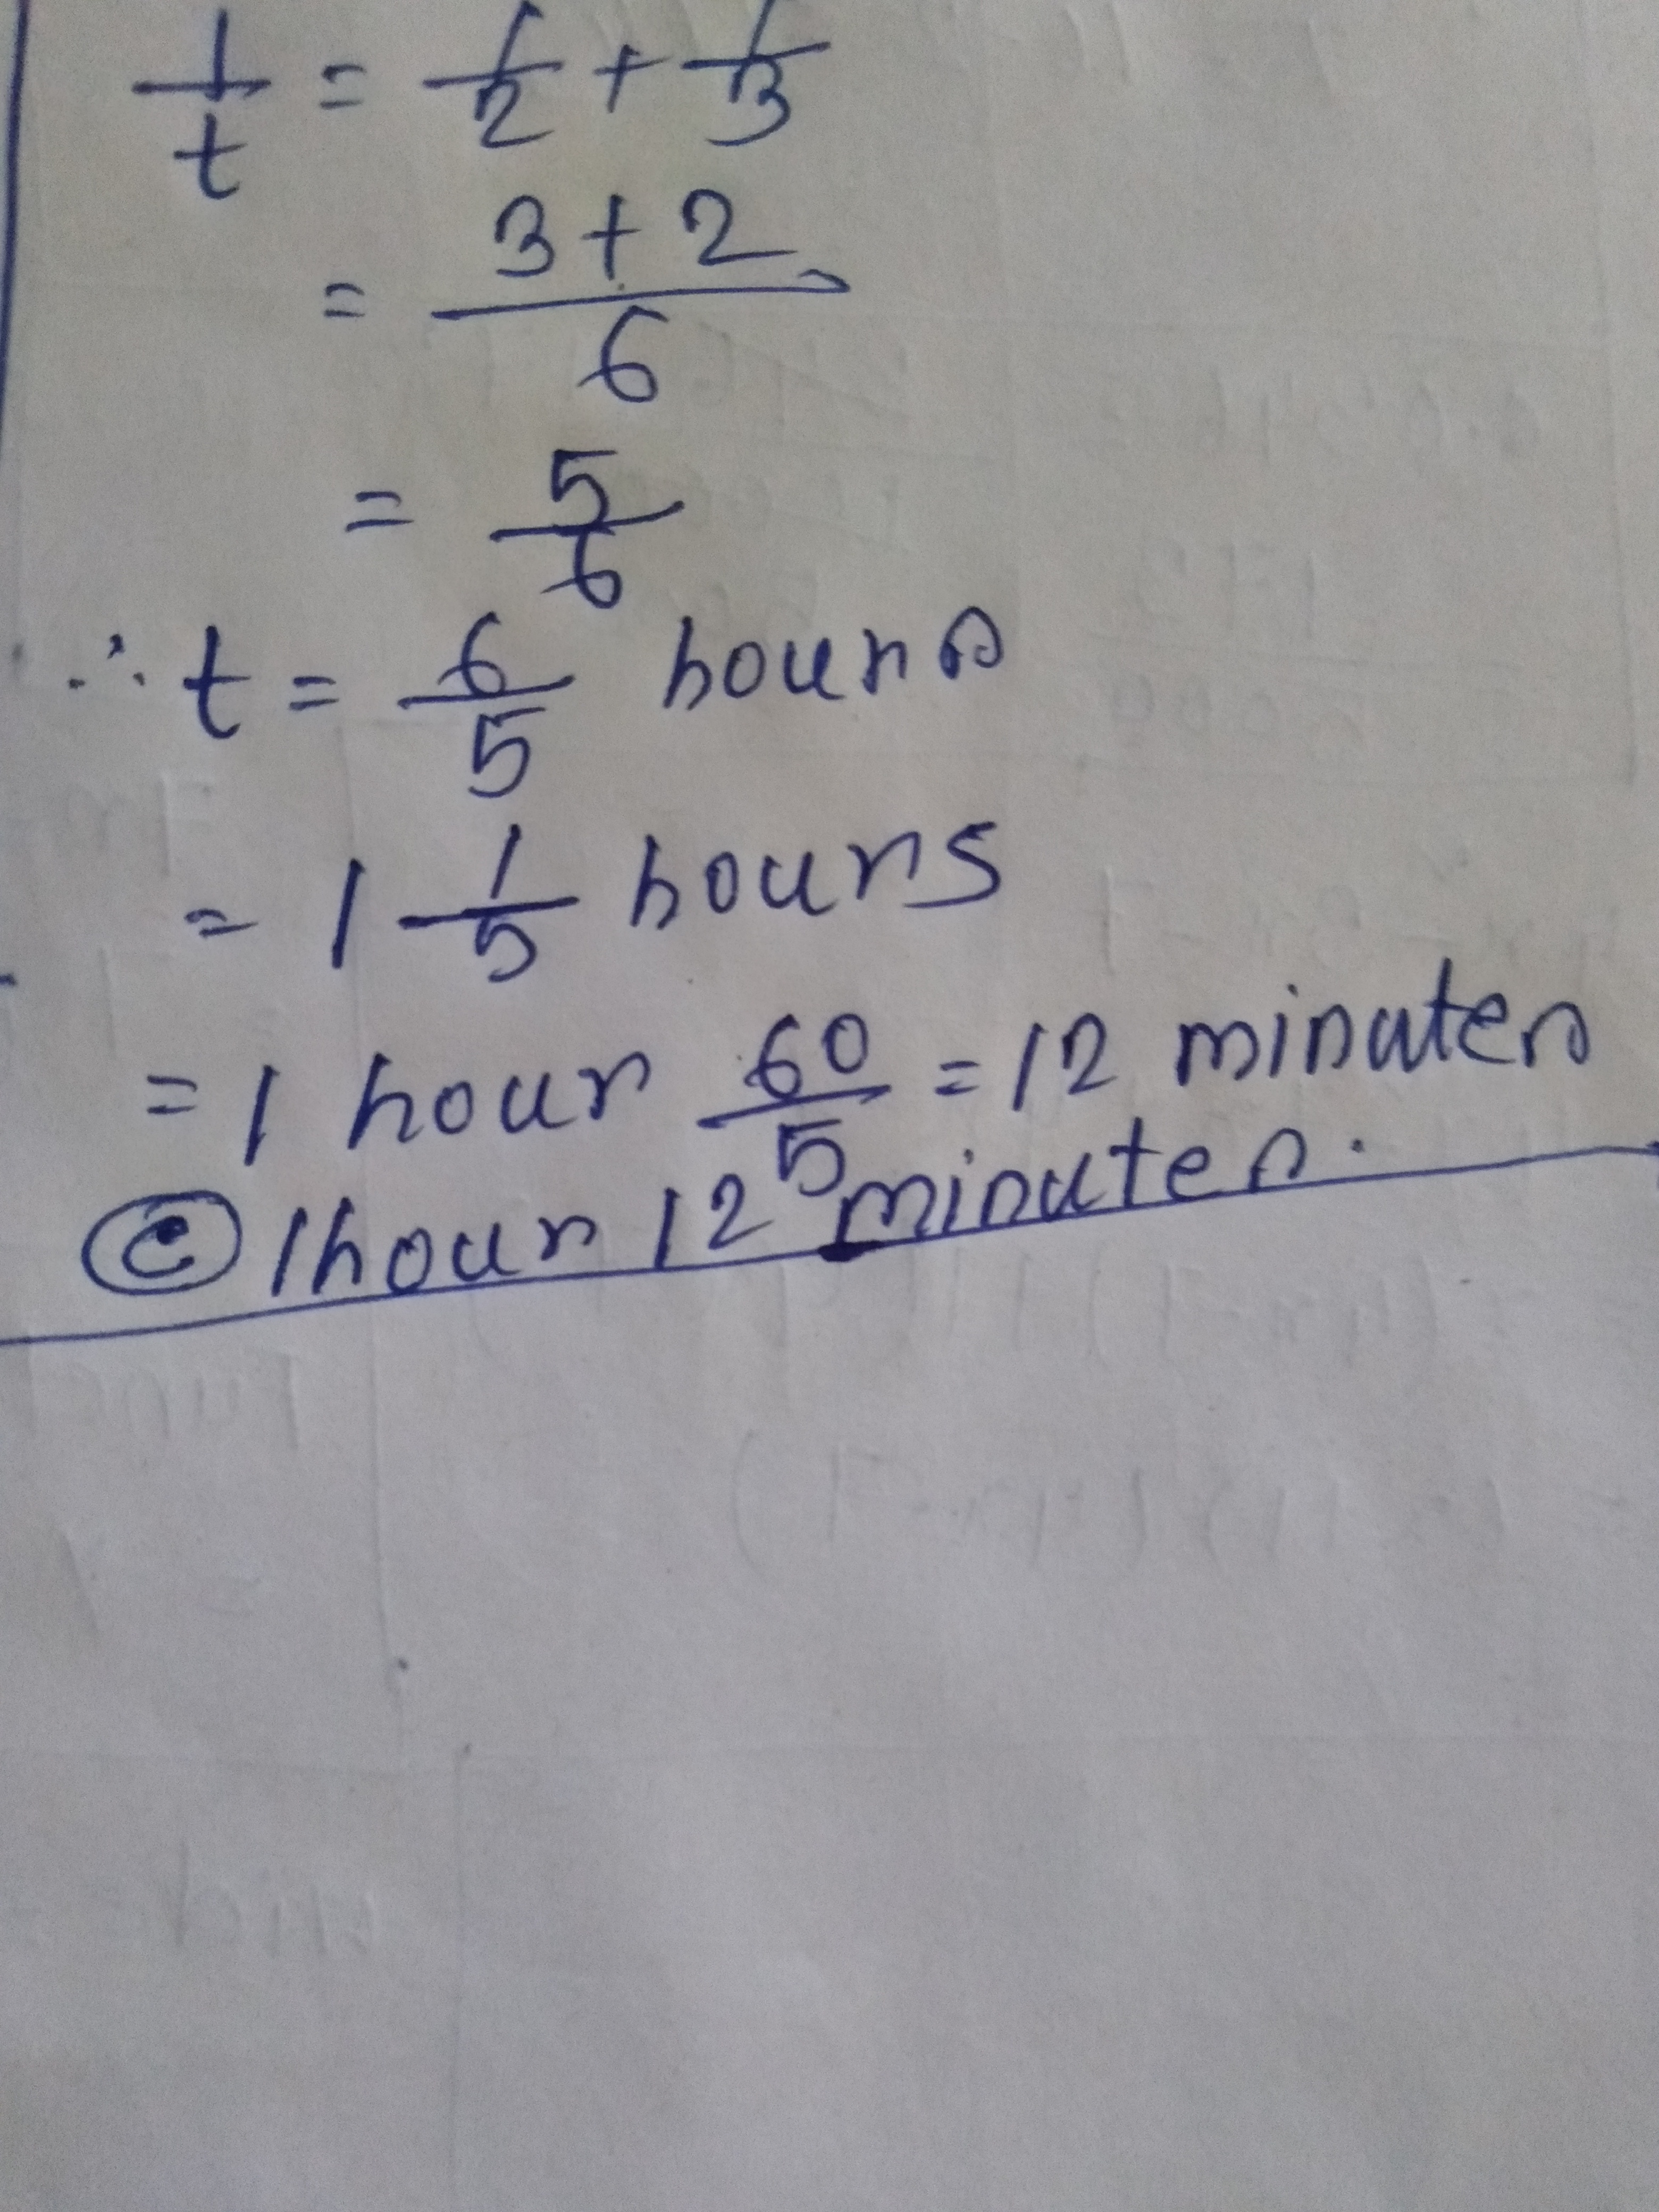 1/t = 1/2 + 1/3
= (3+2)/6
= 5/6
∴ t = 6/5 hours
= 1 1/5 hours
= 1 hour 60/5 = 12 minutes
ⓒ 1hour 12 minutes.